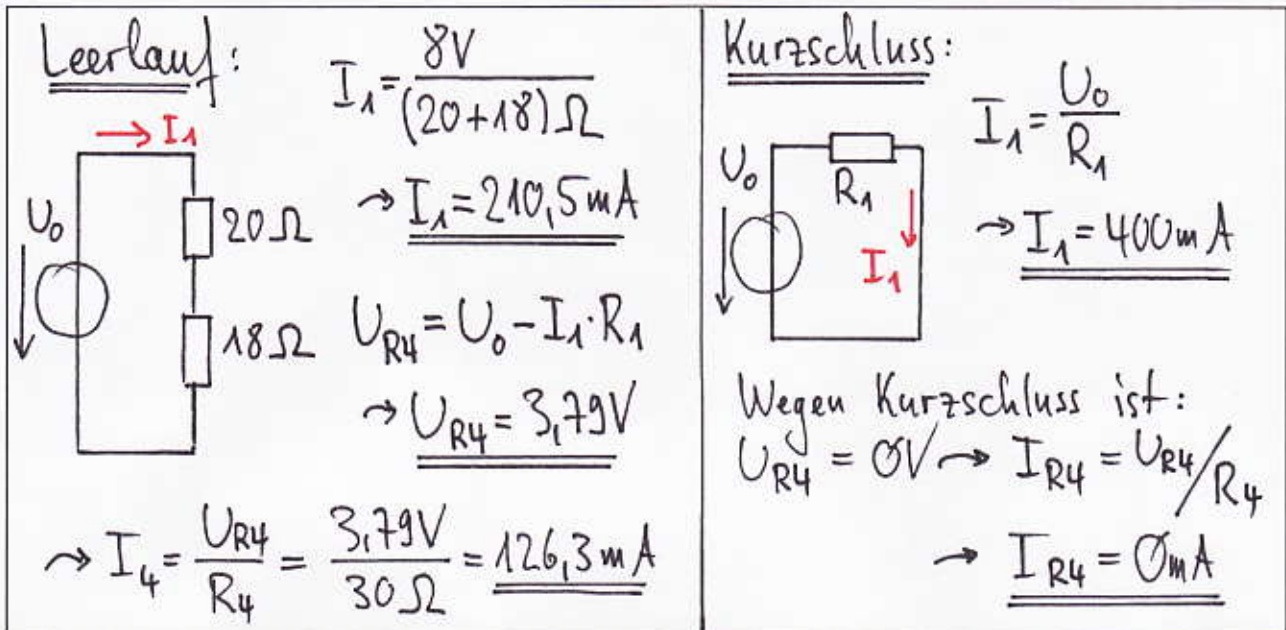 Leerlauf:
I₁ = 8V / (20+18) Ω
→ I₁
U₀
20 Ω
18 Ω
↝ I₁ = 210,5 mA
U_R4 = U₀ - I₁ · R₁
↝ U_R4 = 3,79 V
↝ I₄ = U_R4 / R₄ = 3,79 V / 30 Ω = 126,3 mA
Kurzschluss:
I₁ = U₀ / R₁
U₀
R₁
I₁
↝ I₁ = 400 mA
Wegen Kurzschluss ist:
U_R4 = 0V ↝ I_R4 = U_R4 / R₄
↝ I_R4 = 0 mA